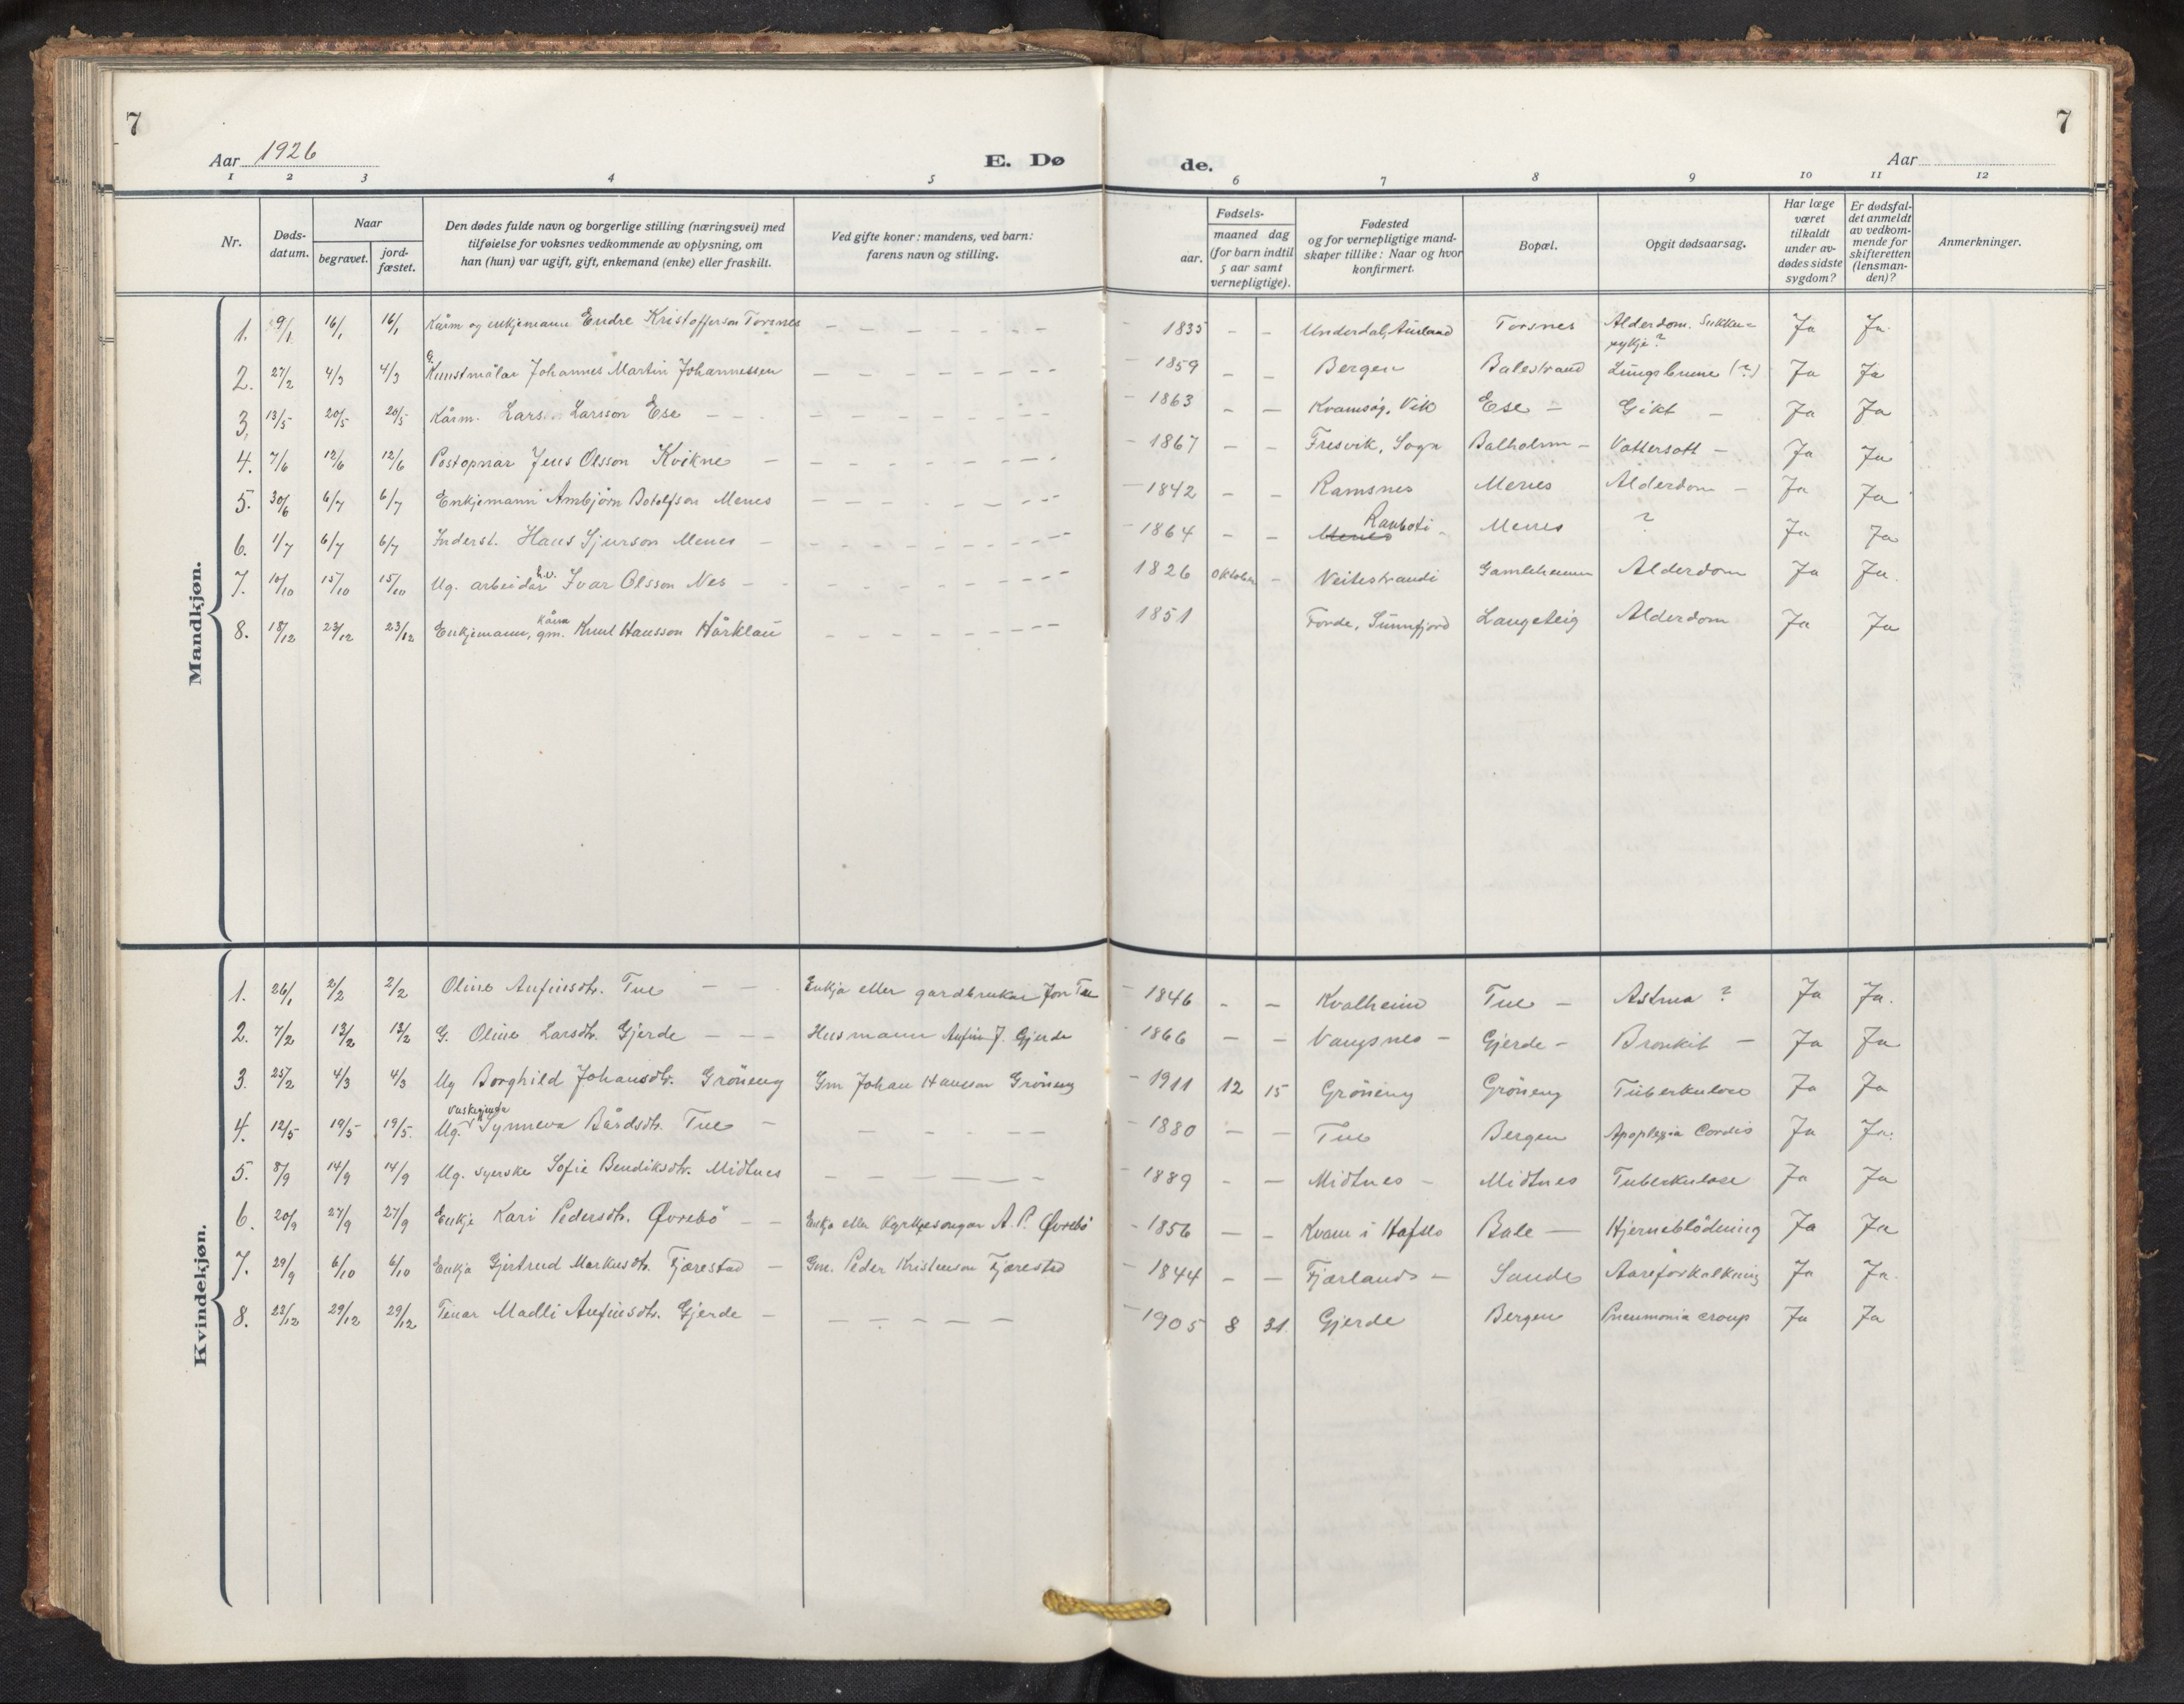 7
7
Aar 1926
E. Dø
de.
Aar
1 2 3 4 5 6 7 8 9 10 11 12
Nr.
Døds-
datum.
Naar
begravet.
jord-
fæstet.
Den dødes fulde navn og borgerlige stilling (næringsvei) med
tilføielse for voksnes vedkommende av oplysning, om
han (hun) var ugift, gift, enkemand (enke) eller fraskilt.
Ved gifte koner: mandens, ved barn:
farens navn og stilling.
Fødsels-
aar.
maaned dag
(for barn indtil
5 aar samt
vernepligtige).
Fødested
og for vernepligtige mand-
skaper tillike: Naar og hvor
konfirmert.
Bopæl.
Opgit dødsaarsag.
Har læge
været
tilkaldt
under av-
dødes sidste
sygdom?
Er dødsfal-
det anmeldt
av vedkom-
mende for
skifteretten
(lensman-
den)?
Anmerkninger.
Mandkjøn.
1. 9/1 16/1 16/1 Kårm og enkjemann Endre Kristofferson Torsnes – 1835 – – Underdal, Aurland Torsnes Alderdom. Sukker=
sykje? Ja Ja.
2. 27/2 4/3 4/3 G. Kunstmålar Johannes Martin Johannessen – 1859 – – Bergen Balestrand Lungebrune (?) Ja Ja
3. 13/5 20/5 20/5 Kårm. Lars Larsson Ese – 1863 – – Kvamsøy, Vik Ese – Gikt – Ja Ja
4. 7/6 12/6 12/6 Postopnar Jens Olsson Kvikne – 1867 – – Fresvik, Sogn Balholm – Vattersott – Ja Ja
5. 30/6 6/7 6/7 Enkjemann Ambjørn Botolfson Menes – 1842 – – Ramsnes Menes Alderdom – Ja Ja
6. 1/7 6/7 6/7 Inderst. Hans Sjurson Menes – 1864 – – Menes Menes ? Ja Ja
7. 10/10 15/10 15/10 Ug. arbeidar h.v. Ivar Olsson Nes – 1826 Oktober – Veitestrandi Gamleheimen Alderdom Ja Ja.
8. 18/12 23/12 23/12 Enkjemann, kårm gm. Knut Hansson Hårklau – 1851 Førde, Sunnfjord Langeteig Alderdom Ja Ja
Kvindekjøn.
1. 26/1 2/2 2/2 Oline Anfinsdtr. Tue – Enkja etter gardbrukar Jon Tue – 1846 – – Kvalheim Tue – Astma ? Ja Ja.
2. 7/2 13/2 13/2 G. Oline Larsdtr. Gjerde – Husmann Anfin J. Gjerde – 1866 – – Vangsnes – Gjerde – Bronkit – Ja Ja
3. 25/2 4/3 4/3 Ug Borghild Johansdtr. Grøneng Gm Johan Hansson Grøneng – 1911 12 15 Grøneng Grøneng Tuberkulose Ja Ja
4. 12/5 19/5 19/5. Ug. vaskegjenta Synneva Bårdsdtr. Tue – 1880 – – Tue Bergen Apoplexia Cordis Ja Ja.
5. 8/9 14/9 14/9 Ug. syerske Sofie Bendiksdtr. Midtnes – 1889 – – Midtnes – Midtnes Tuberkulose Ja Ja
6. 20/9 27/9 27/9 Enkje Kari Pedersdtr. Øvrebø – Enkja etter kyrkjesongar A. P. Øvrebø – 1856 – – Kvam i Hafslo Bale – Hjerneblødning Ja Ja
7. 29/9 6/10 6/10 Enkja Gjertrud Markusdtr. Fjærestad – Gm. Peder Kristenson Fjærestad – 1844 – – Fjærland – Sande Aareforkalkning Ja Ja.
8. 23/12 29/12 29/12 Tenar Madli Anfinsdtr. Gjerde – 1905 8 31. Gjerde Bergen Pneumonia croup Ja Ja